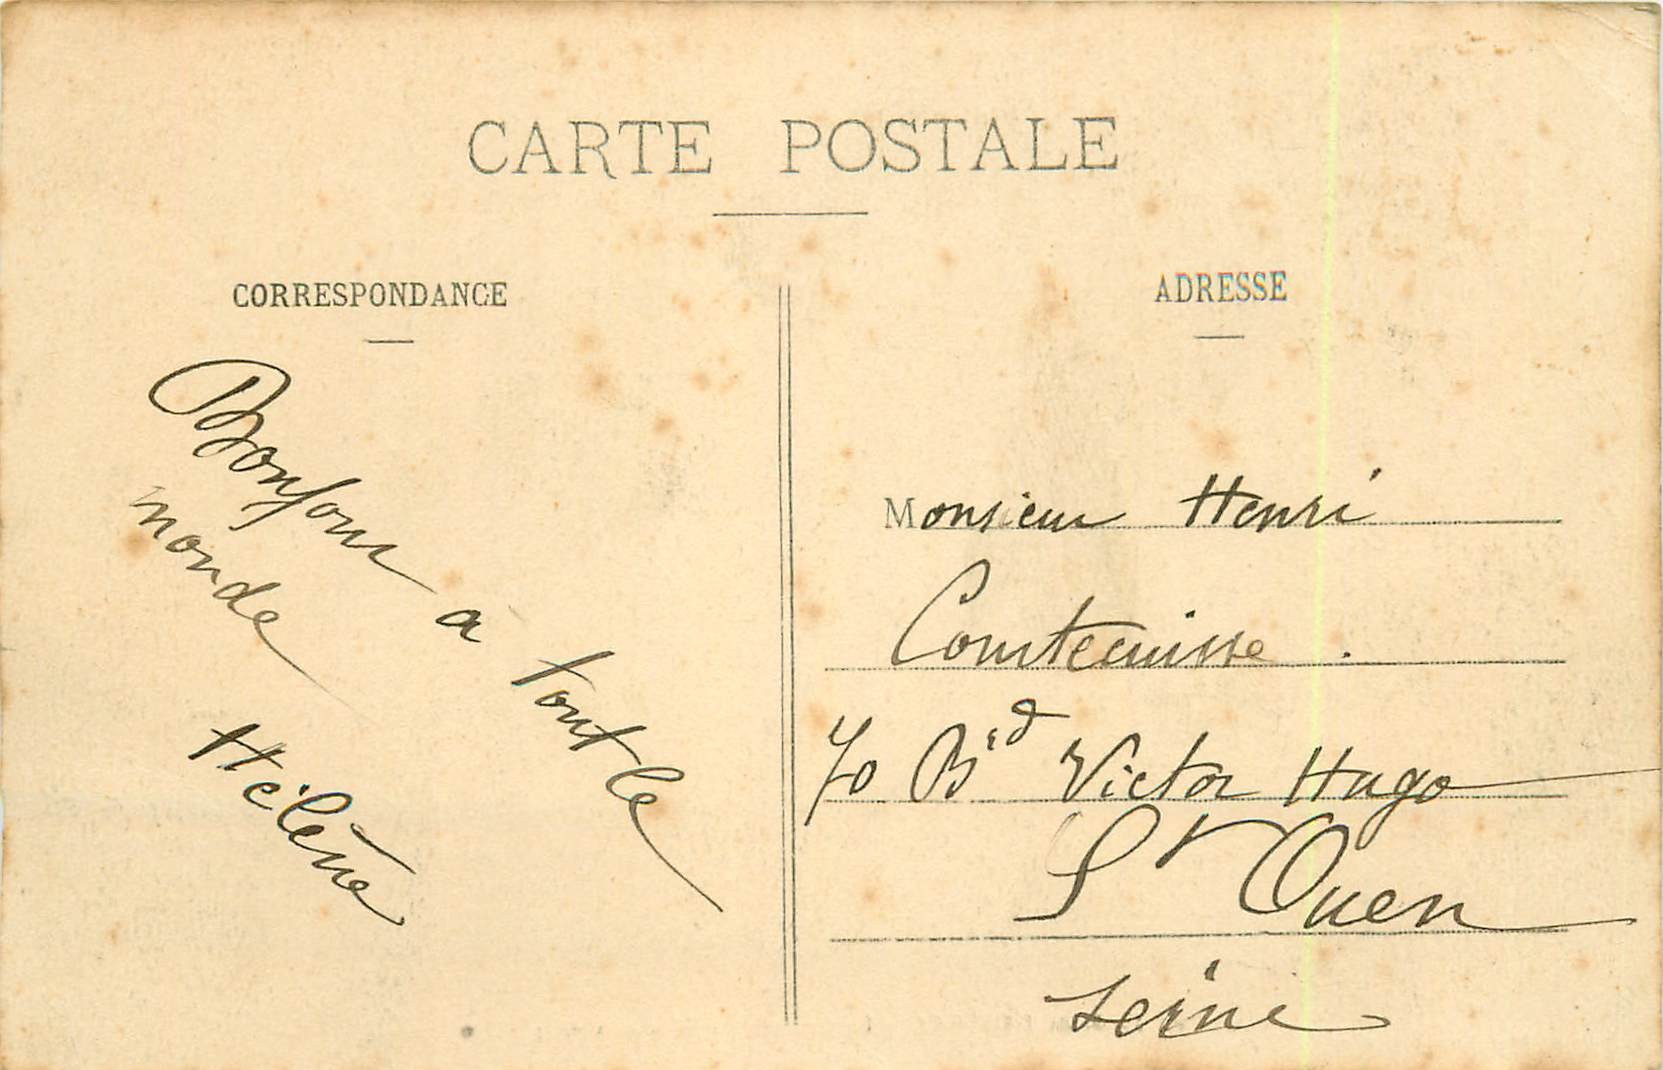 CARTE POSTALE
CORRESPONDANCE
Bonjour à tout le
monde
Hélène
ADRESSE
Monsieur Henri
70 Bd Victor Hugo
St Ouen
Seine